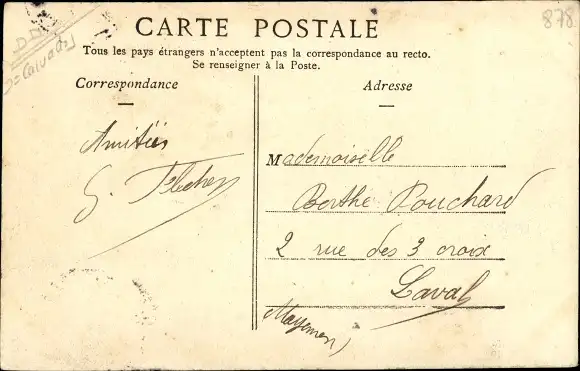 CARTE POSTALE
Tous les pays étrangers n'acceptent pas la correspondance au recto.
Se renseigner à la Poste.
878
D=Calvados
Correspondance
Amitiés
G.
Adresse
Mademoiselle
Berthe Pouchard
2 rue des 3 croix
Laval
(Mayenne)